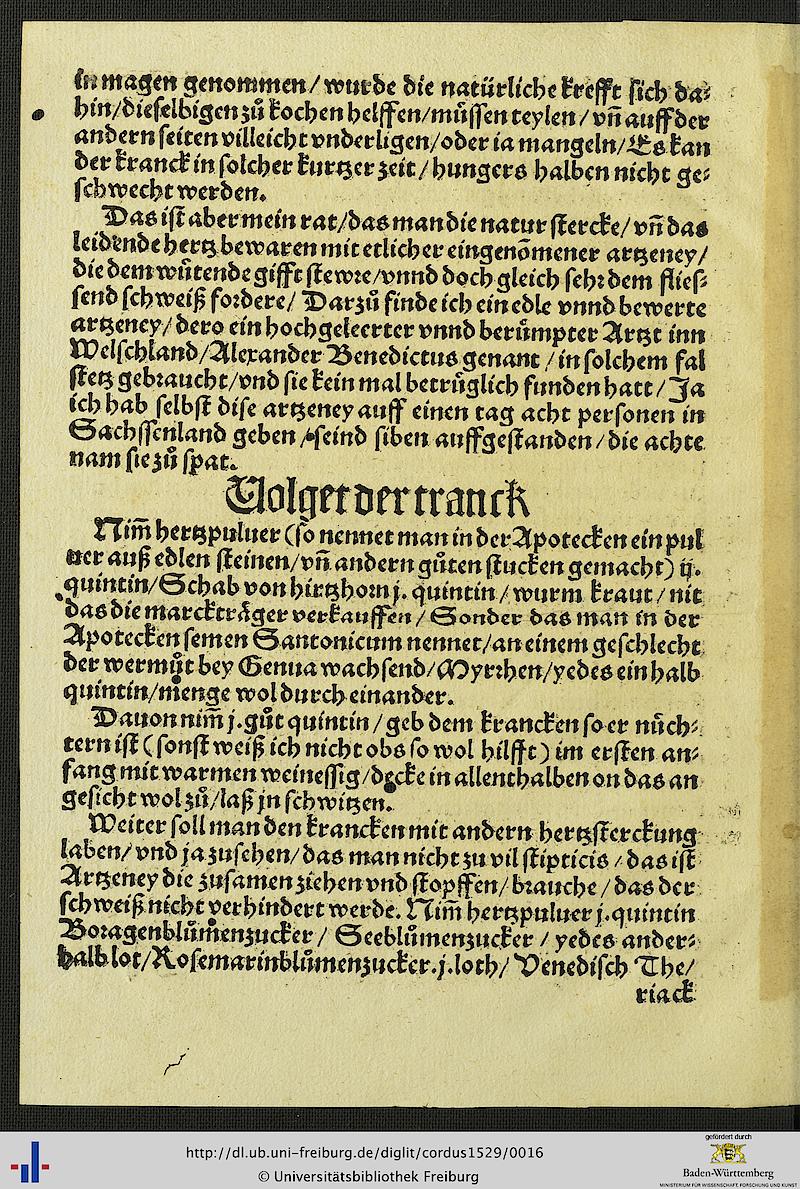 in magen genommen/ wurde die natürliche krefft sich da⸗
hin/dieselbigen zů kochen helffen/müssen teylen/ vñ auff der
andern seiten villeicht vnderligen/oder ia mangeln/Es kan
der kranck in solcher kurtzer zeit/ hungers halben nicht ge⸗
schwecht werden.
Das ist aber mein rat/das man die natur stercke/ vñ das
leidende hertz bewaren mit etlicher eingenōmener artzeney/
die dem wůtende gifft stewre/vnnd doch gleich sehr dem flies⸗
send schweiß fordere/ Darzů finde ich ein edle vnnd bewerte
artzeney/ dero ein hochgeleerter vnnd berümpter Artzt inn
Welschland/Alexander Benedictus genant / in solchem fal
stetz gebraucht/vnd sie kein mal betrüglich funden hatt/ Ja
ich hab selbst dise artzeney auff einen tag acht personen in
Sachssenland geben / seind siben auffgestanden/ die achte
nam sie zů spat.
Volget der tranck
Nim̃ hertzpuluer (so nennet man in der Apotecken ein pul
uer auß edlen steinen/vñ andern gůten stucken gemacht) ij.
quintin/Schab von hirtzhorn j. quintin / wurm kraut/ nit
das die marckträger verkauffen/ Sonder das man in der
Apotecken semen Santonicum nennet/an einem geschlecht
der wermůt bey Genua wachsend/Myrrhen/yedes ein halb
quintin/menge wol durch einander.
Dauon nim̃ j. gůt quintin/ geb dem krancken so er nüch⸗
tern ist (sonst weiß ich nicht obs so wol hilfft) im ersten an⸗
fang mit warmen weinessig/decke in allenthalben on das an
gesicht wol zů/laß jn schwitzen.
Weiter soll man den krancken mit andern hertzsterckung
laben/ vnd ja zusehen/das man nicht zu vil stipticis / das ist
Artzeney die zusamen ziehen vnd stopffen/ brauche/ das der
schweiß nicht verhindert werde. Nim̃ hertzpuluer j. quintin
Boragenblůmenzucker/ Seeblůmenzucker / yedes ander⸗
halb lot/Rosemarinblůmenzucker. j. loth/ Venedisch The/
riack
http://dl.ub.uni-freiburg.de/diglit/cordus1529/0016
© Universitätsbibliothek Freiburg
gefördert durch
Baden-Württemberg
MINISTERIUM FÜR WISSENSCHAFT, FORSCHUNG UND KUNST